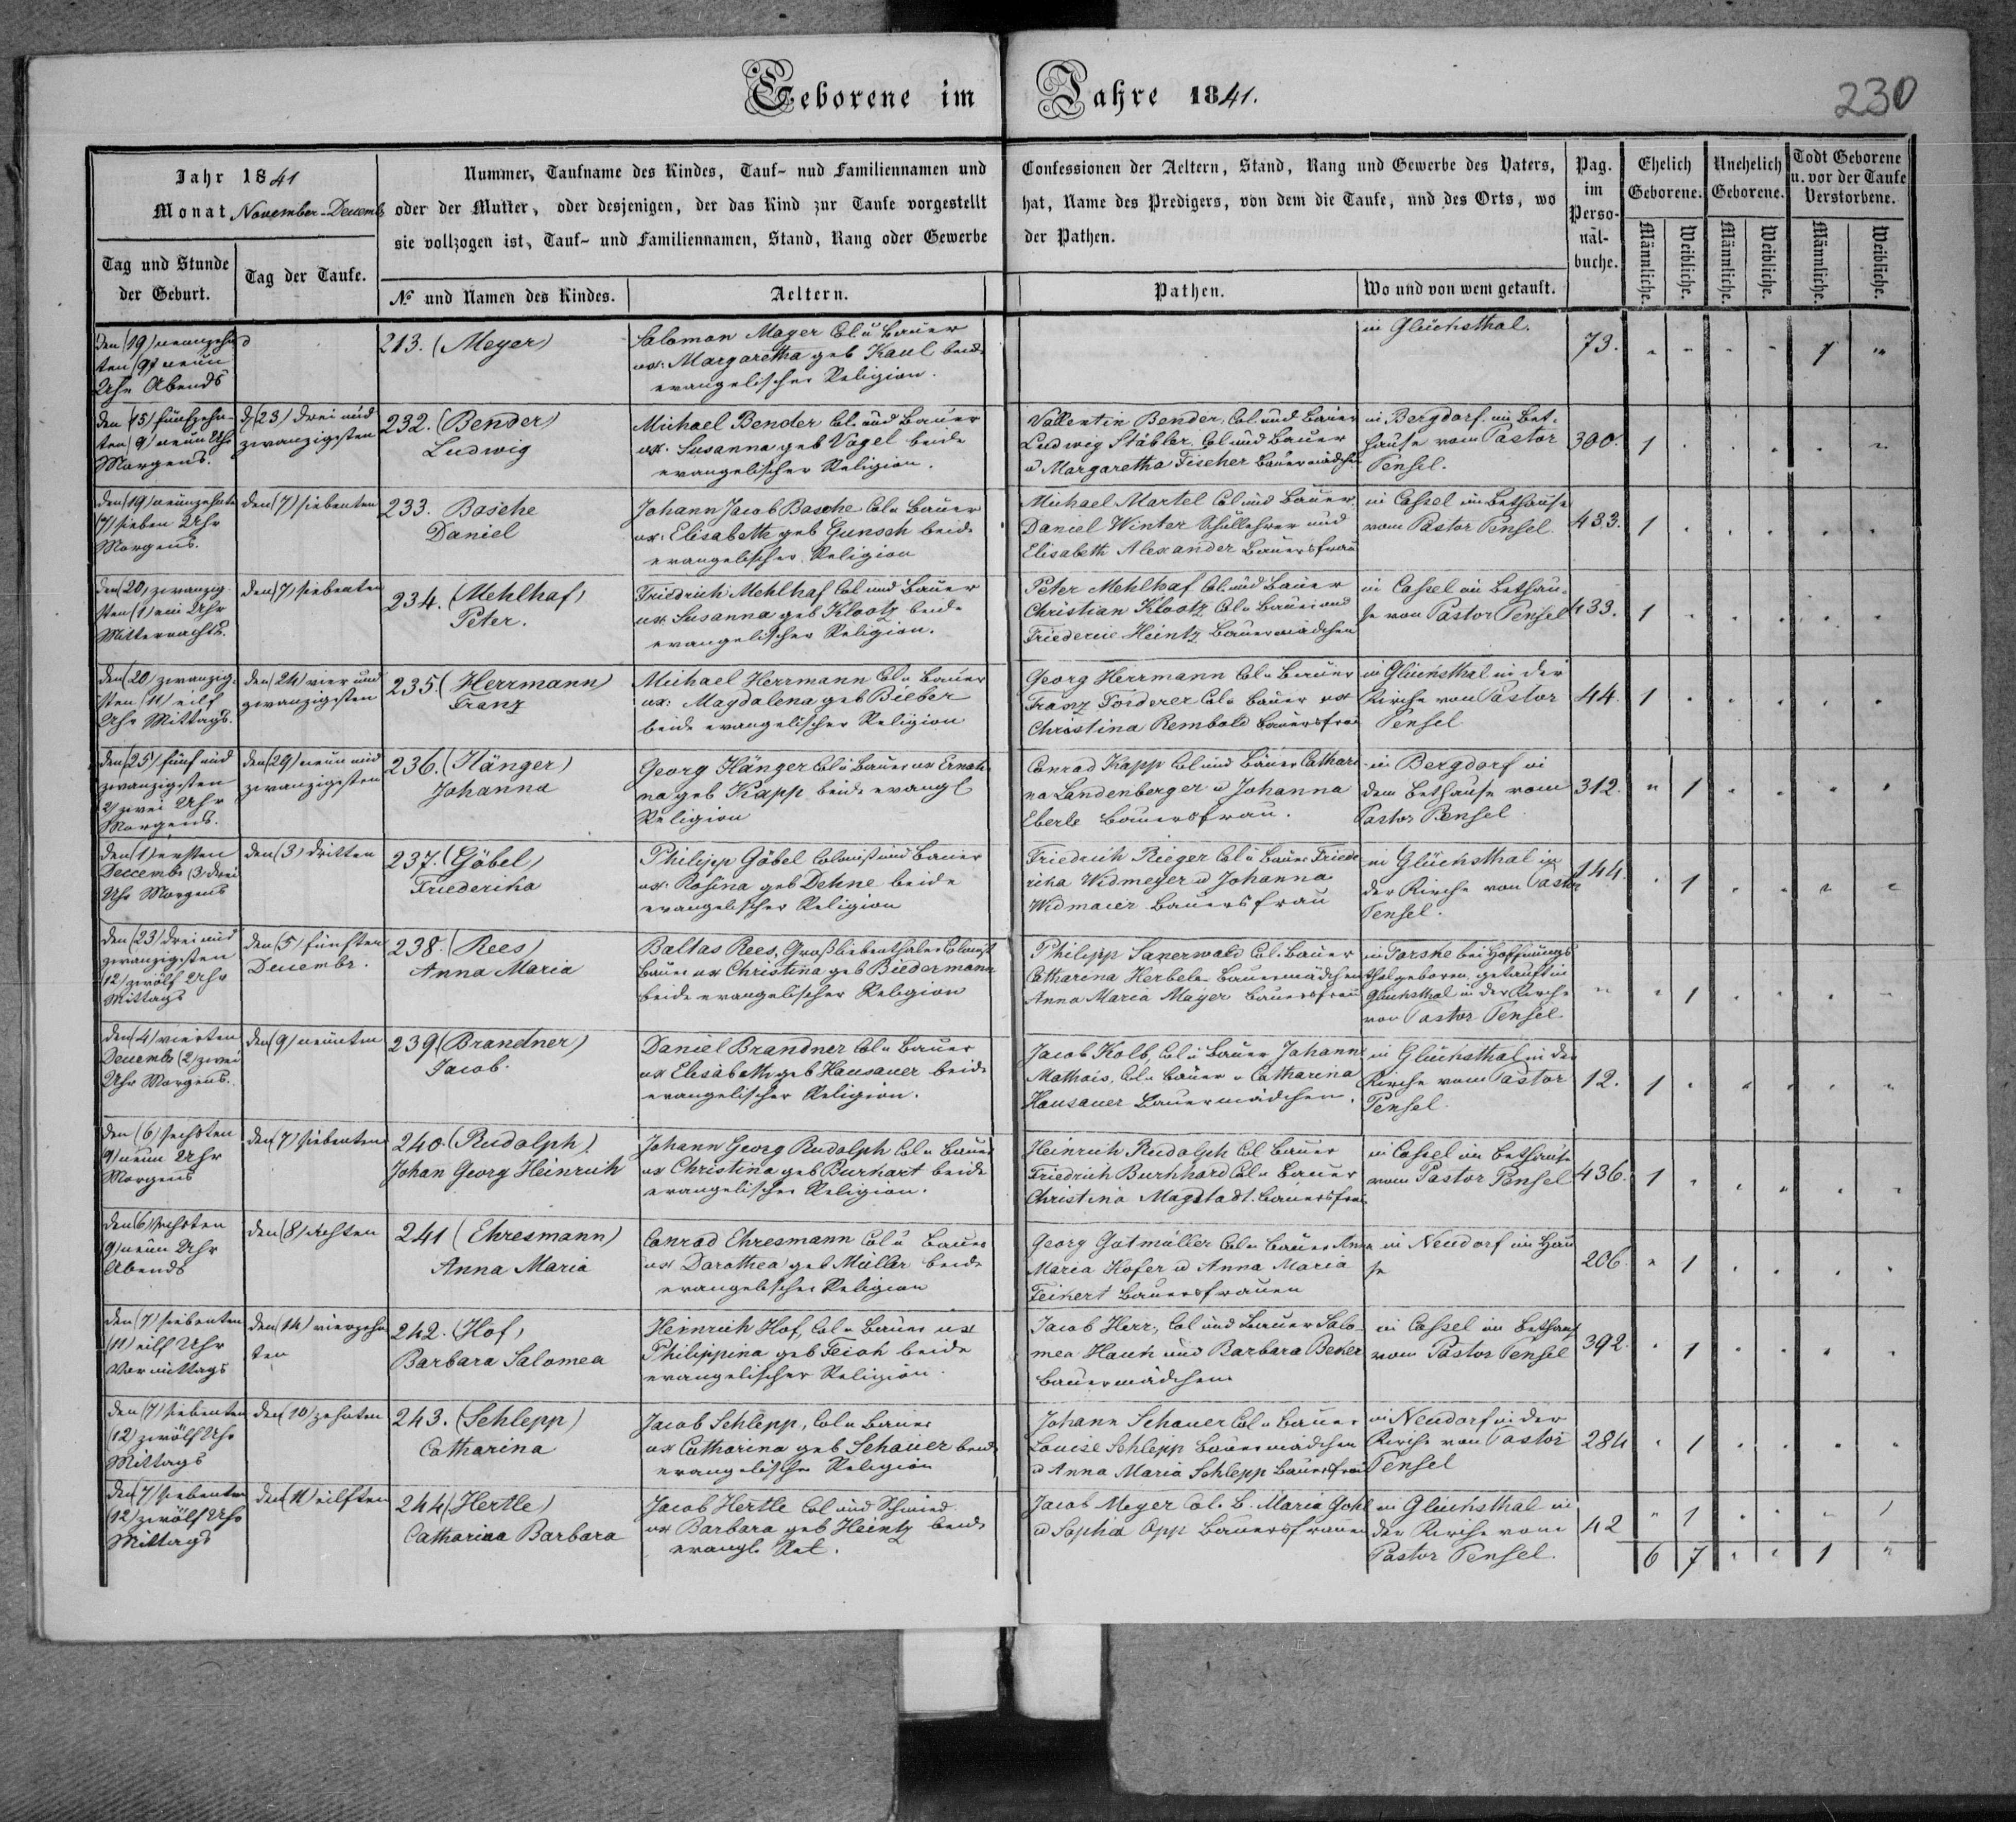 Geborene im Jahre 1841.
230
Jahr 1841
Monat November-Decemb
Tag und Stunde
der Geburt.
Tag der Taufe.
Nummer, Taufname des Kindes, Tauf- nud Familiennamen und
oder der Mutter, oder desjenigen, der das Kind zur Taufe vorgestellt
sie vollzogen ist, Tauf- und Familiennamen, Stand, Rang oder Gewerbe
No und Namen des Kindes.
Aeltern.
Confessionen der Aeltern, Stand, Rang und Gewerbe des Vaters,
hat, Name des Predigers, von dem die Taufe, und des Orts, wo
der Pathen.
Pathen.
Wo und von wem getauft.
Pag.
im
Perso-
nal-
buche.
Ehelich
Geborene.
Unehelich
Geborene.
Todt Geborene
u. vor der Taufe
Verstorbene.
Männliche.
Weibliche.
Männliche.
Weibliche.
Männliche.
Weibliche.
den (19) neunzehn
ten (9) neun
Uhr Abends
213. (Meyer)
Salomon Mayer Col u Bauer
ux: Margaretha geb Kaul beide
evangelischer Religion.
in Glücksthal.
73.
1
den (15) fünfzehn-
ten (9) neun Uhr
Morgens.
d (23) drei und
zwanzigsten
232. (Bender)
Ludwig
Michael Bender Col. und Bauer
ux. Susanna geb Vogel beide
evangelischer Religion.
Vallentin Bender, Col. und Bauer
Ludwig Stäbler Col und Bauer
u Margaretha Fischer Bauermädchen
in Bergdorf im Bet-
hause vom Pastor
Pensel.
300.
1
den (19) neunzehnten
(7) sieben Uhr
Morgens.
den (7) siebenten
233. Basche
Daniel
Johann Jacob Basche Col u Bauer
ux: Elisabeth geb Gunsch beide
evangelischer Religion
Michael Martel Col und Bauer
Daniel Winter Schullehrer und
Elisabeth Alexander Bauersfrau
in Cassel im Bethause
vom Pastor Pensel
433.
1
den (20) zwanzig
sten (1) ein Uhr
Mitternachts.
den (7) siebenten
234. (Mehlhaf)
Peter.
Friedrich Mehlhaf Col und Bauer
ux Susanna geb Klootz beide
evangelischer Religion.
Peter Mehlhaf Col und Bauer
Christian Klootz Col u Bauer und
Friederic Heintz Bauermädchen
in Cassel im Bethau-
se von Pastor Pensel
433.
1
den (20) zwanzig-
sten (11) eilf
Uhr Mittags.
den (24) vier und
zwanzigsten
235. (Herrmann)
Franz
Michael Herrmann Col u Bauer
ux: Magdalena geb Bieber
beide evangelischer Religion
Georg Herrmann Col u Bauer
Franz Forderer Col u Bauer ux
Christina Rembold Bauersfrau
in Glücksthal in der
Kirche von Pastor
Pensel
44.
1
den (25) fünf und
zwanzigsten
2) zwei Uhr
Morgens.
den (29) neun und
zwanzigsten
236. (Hänger)
Johanna
Georg Hänger Col u Bauer ux
na geb Kapp beide evangl
Religion
Conrad Kapp Col und Bauer Cathari
na Landenberger u Johanna
Eberle Bauersfrau.
in Bergdorf in
dem Bethause vom
Pastor Pensel
312.
1
den (1) ersten
Deccembr (3) drei
Uhr Morgens
den (3) dritten
237. (Göbel)
Friederika
Philipp Göbel Colonist und Bauer
ux: Rosina geb Dehne beide
evangelischer Religion
Friedrich Rieger Col u Bauer Friede
rika Widmeyer u Johanna
Widmaier Bauersfrau
in Glücksthal in
der Kirche von Pastor
Pensel.
144.
1
den (23) drei und
zwanzigsten
(12) zwölf Uhr
Mittags
den (5) fünften
Decembr.
238. (Rees)
Anna Maria
Baltas Rees, Großliebenthaler Colonist
Bauer ux Christina geb Biedermann
beide evangelischer Religion
Philipp Sanerwald Col. Bauer
Catharina Herbele Bauermädchen
Anna Maria Mayer Bauersfrau
in Forske bei Hoffnungs
thal geboren, getauft in
Glücksthal in der Kirche
von Pastor Pensel
1
den (4) vierten
Decembr (2) zwei
Uhr Morgens.
den (9) neunten
239 (Brandner)
Jacob.
Daniel Brandner Col u Bauer
ux Elisabeth geb Hausauer beide
evangelischer Religion.
Jacob Kolb, Col u Bauer Johann
Mathois, Col u Bauer u Catharina
Hausauer Bauermädchen.
in Glücksthal in der
Kirche vom Pastor
Pensel.
12.
1
den (6) sechsten
9) neun Uhr
Morgens
den (7) siebenten
240. (Rudolph)
Johan Georg Heinrich
Johann Georg Rudolph Col u Bauer
ux Christina geb Burkart beide
evangelischer Religion.
Heinrich Rudolph Col Bauer
Friedrich Burkhard Col u Bauer
Christina Magstadt Bauersfrau
in Cassel im Bethause
vom Pastor Pensel
436.
1
den (6) sechsten
9) neun Uhr
Abends
den (8) achten
241 (Ehresmann)
Anna Maria
Conrad Ehresmann Col u Bauer
ux Darothea geb Müller beide
evangelischer Religion
Georg Gutmüller Col u Bauer Anna
Maria Kofer u Anna Maria
Feikert Bauersfrauen
in Neudorf im Hau
se
206.
1
den (7) siebenten
(11) eilf Uhr
Vormittags
den (14) vierzehn
ten
242. (Hof)
Barbara Salomea
Heinrich Hof, Col u Bauer ux
Philippina geb Feioh beide
evangelischer Religion.
Jacob Herr, Col und Bauer Salo-
mea Hauk und Barbara Beker
Bauermädchen
in Cassel im Bethaus
vom Pastor Pensel
392.
1
den (7) siebenten
(12) zwölf Uhr
Mittags
den (10) zehnten
243. (Schlepp)
Catharina
Jacob Schlepp, Col u Bauer
ux Catharina geb Schauer beide
evangelischer Religion
Johann Schauer Col u Bauer
Louise Schlepp Bauermädchen
u Anna Maria Schlepp Bauersfrau
in Neudorf in der
Kirche von Pastor
Pensel
284
1
den (7) siebenten
(12) zwölf Uhr
Mittags
den (11) eilften
244 (Hertle)
Catharina Barbara
Jacob Hertle Col und Schmied
ux Barbara geb Heintz beide
evangl. Rel.
Jacob Meyer Col. B. Maria Gohl
u Sophia Opp Bauersfrauen
in Glücksthal in
der Kirche vom
Pastor Pensel.
42
1
6 7 " " 1 "